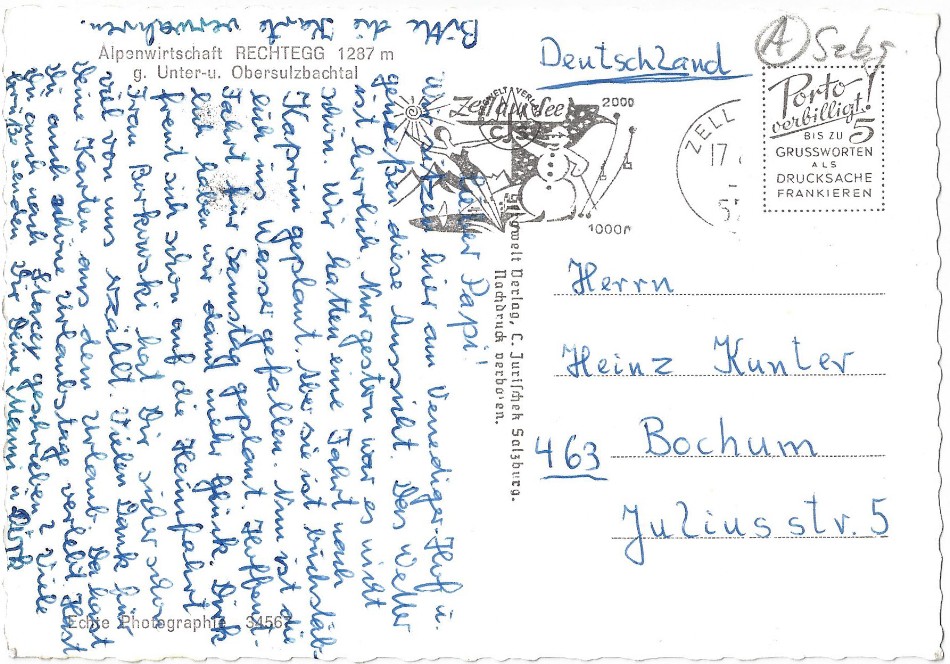 Bitte die Karte verwahren.
Alpenwirtschaft RECHTEGG 1287 m
g. Unter-u. Obersulzbachtal
Lieber Papi!
Wir sitzen hier am Venediger-Hof u.
genießen diese Aussicht. Das Wetter
ist herrlich. Nur gestern war es nicht
schön. Wir hatten eine Fahrt nach
Kaprun geplant. Aber sie ist buchstäb-
lich ins Wasser gefallen. Nun ist die
Fahrt für Samstag geplant. Hoffent-
lich haben wir dann mehr Glück. Dirk
freut sich schon auf die Heimfahrt.
Frau Borkowski hat Dir sicher schon
viel von uns erzählt. Vielen Dank für
Deine Karten aus dem Urlaub. Da hast
Du auch schöne Urlaubstage verlebt. Hast
Du auch nach geschrieben? Viele
Grüße senden Dir Deine Mann u. Dirk
Echte Photographie 34567
Schowelt Verlag, C. Jurischek Salzburg.
Nachdruck verboten.
Deutschland
(A) Szbg
ZELL
17
57
Zell am See
2000
1000
Porto
verbilligt!
BIS ZU 5
GRUSSWORTEN
ALS
DRUCKSACHE
FRANKIEREN
Herrn
Heinz Kunter
463 Bochum
Juliusstr. 5